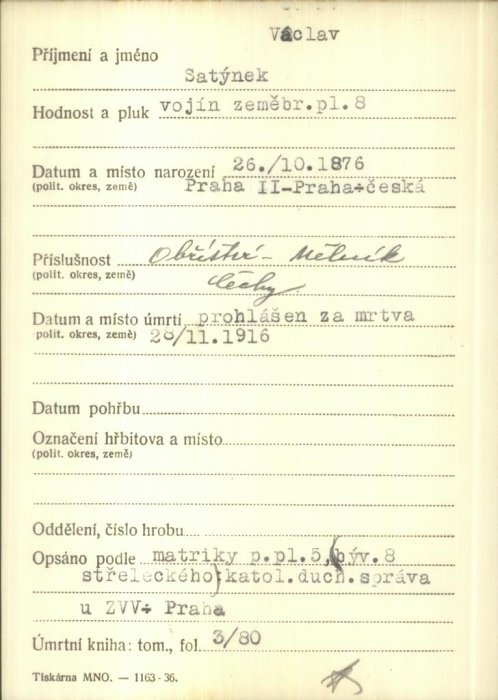 Václav
Příjmení a jméno
Satýnek
Hodnost a pluk vojín zeměbr.pl.8
Datum a místo narození 26./10.1876
(polit. okres, země) Praha II-Praha-česká
Příslušnost Obříství - Mělník
(polit. okres, země) Čechy
Datum a místo úmrtí prohlášen za mrtva
(polit. okres, země) 28/11.1916
Datum pohřbu
Označení hřbitova a místo
(polit. okres, země)
Oddělení, číslo hrobu
Opsáno podle matriky p.pl.5,(býv.8
střeleckého) katol.duch.správa
u ZVV- Praha
Úmrtní kniha: tom., fol. 3/80
Tiskárna MNO. — 1163-36.